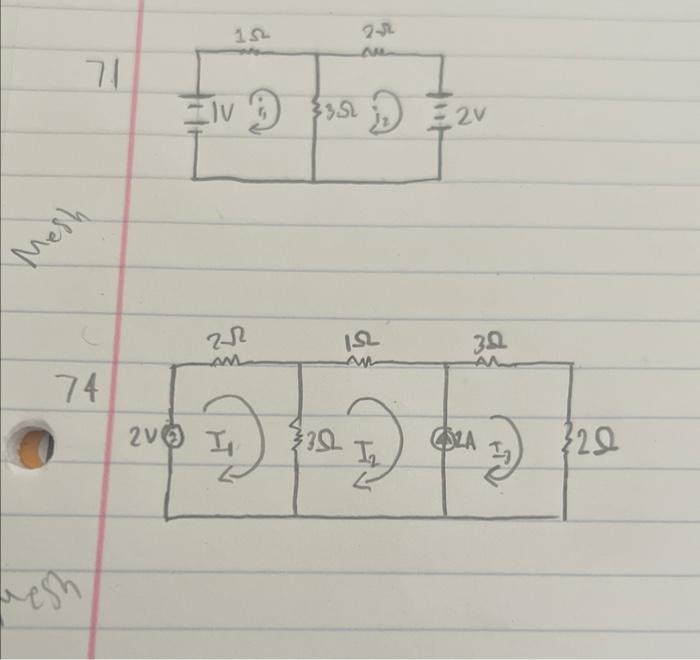 1Ω 2Ω
71
1V i₁ 3Ω i₂ 2V
Mesh
2Ω 1Ω 3Ω
74
2V I₁ 3Ω I₂ 2A I₃ 2Ω
mesh